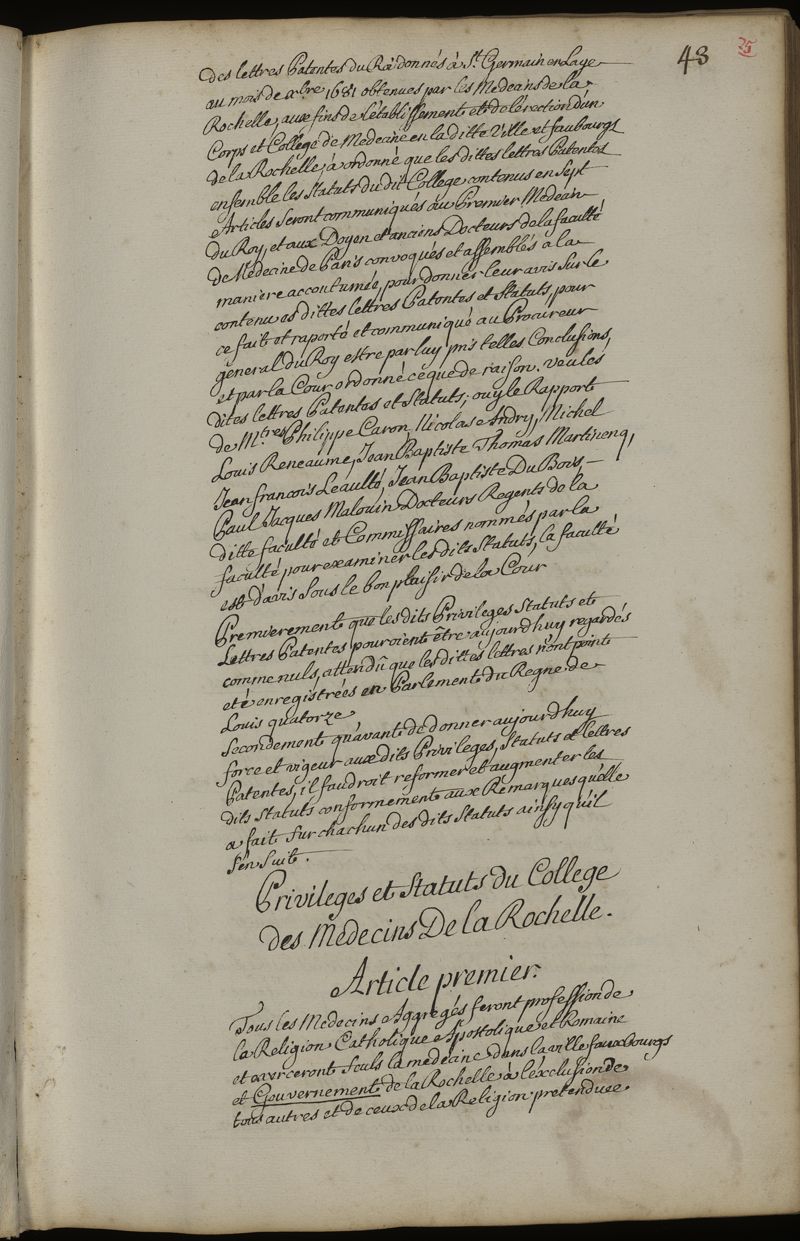 43 25
des lettres Patentes du Roi donnés à St. Germain en Laye
au mois de xbre 1681 obtenues par les Medecins de la
Rochelle, aux fins de l'établissement et de lérection d'un
Corps et Collége de Medecine en la ditte Ville et fauBourgs
de la Rochelle, à ordonné que les dittes lettres Patentes
ensemble les Statuts du dit College contenus en Sept
Articles Seront communiqués au Premier Medecin
du Roy, et aux Doyen et anciens Docteurs de la faculté
de Medecine de Paris convoqués et assemblés a la
maniere accoutumée, pour donner leur avis Sur le
contenu es dittes lettres Patentes et Statuts, pour
ce fait et raporté et communiqué au Procureur
general du Roy estre par luy pris telles Conclusions,
et par la Cour ordonné ce que de raison. Veu les
dites lettres Patentes et Statuts; ouy le Rapport
de Mtres Philippe Caron, Nicolas Andry, Michel
Louis Reneaume, Jean Baptiste Thomas Martinenq,
Jean francois Leaulté, Jean Baptiste Du Bois,
Paul Jacques Malouin Docteurs Regents de la
ditte faculté et Commissaires nommés par la
faculté pour examiner les dits Statuts, la faculté
est d'avis Sous le bon plaisir de la Cour
Premierement que lesdits Privileges Statuts et
Lettres Patentes pouroient être aujourd'huy regardés
comme nuls, attendû que les dittes lettres n'ont point
eté enregistrées en Parlement du Regne de
Louis quatorze
Secondement qu'avant de donner aujourd'huy
force et vigeur aux dits Privileges, Statuts et lettres
Patentes, il faudroit reformer et augmenter les
dits Statuts conformement aux Remarques qu'elle
a fait Sur chachun des dits Statuts ainsy qu'il
S'en Suit.
Privileges et Statuts du College
des Medecins De la Rochelle.
Article premier.
Tous les Medecins Aggregés feront profession de
la Religion Catholique Apostolique et Romaine
et exerceront Seuls la medecine dans la ville fauxbourgs
et Gouvernement de la Rochelle à l'exclusion De
tous autres et de ceux de la Religion pretenduee